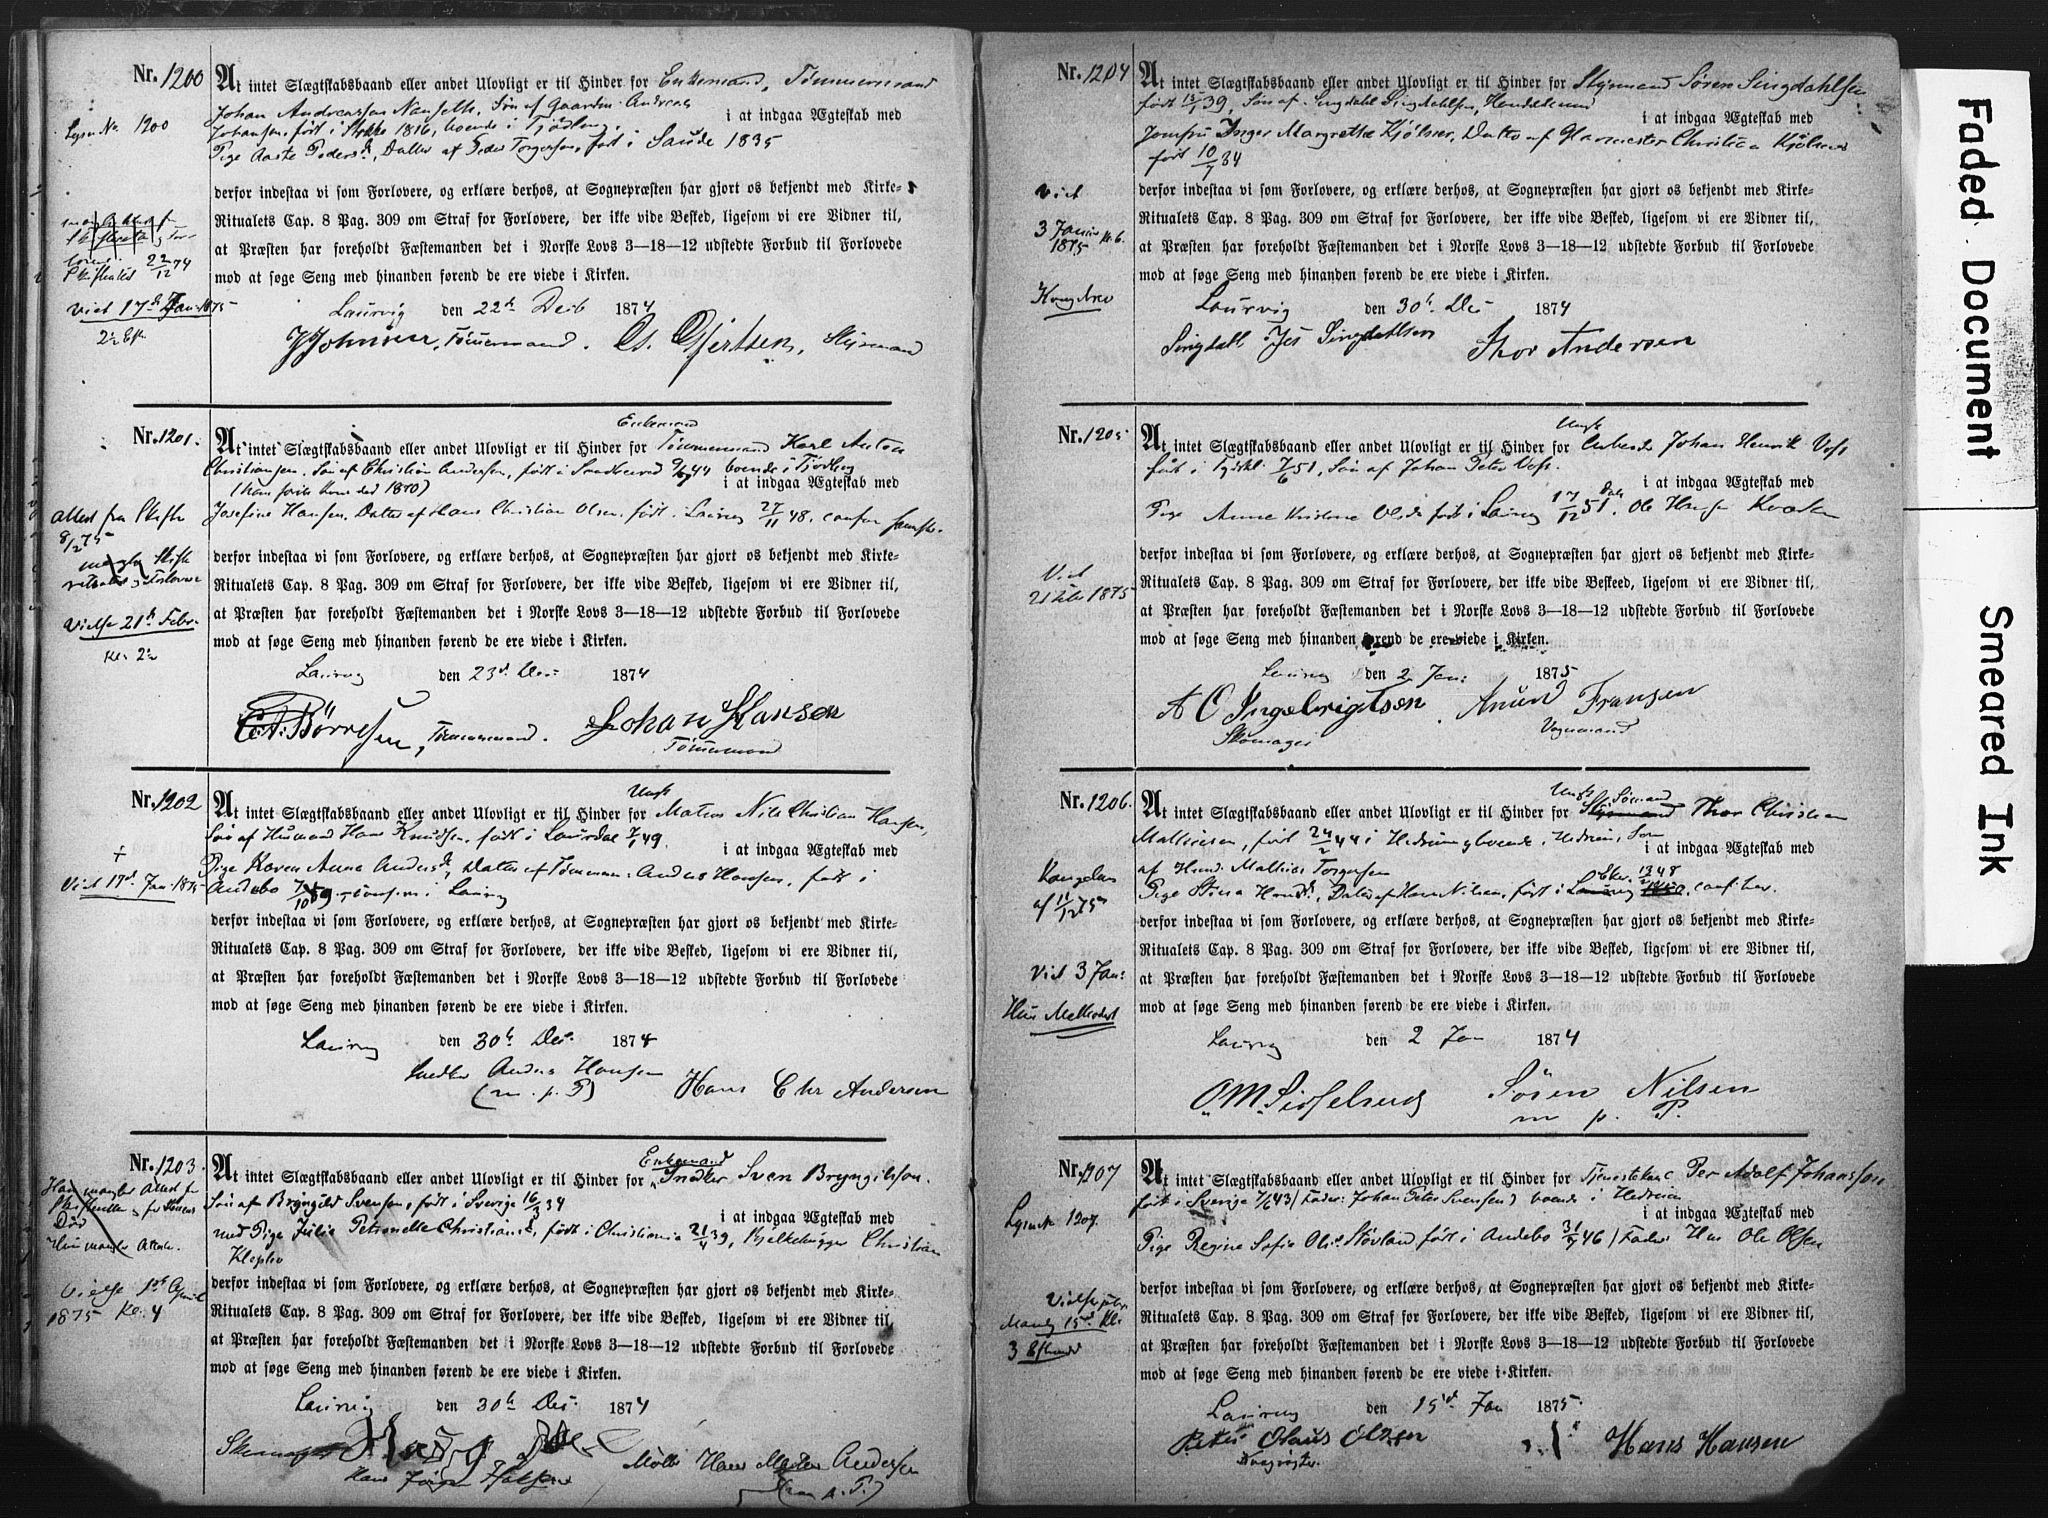 Nr. 1200
At intet Slægtskabsbaand eller andet Ulovligt er til Hinder for Enkemand, Tømmermand
Johan Andreassen Nanseth, Søn af Gaardm. Andreas
Lysn No. 1200
i at indgaa Ægteskab med
Johansen, født i Stokke 1816, boende i Tjødling,
Pige Aaste Peders D, Datter af Peder Torgersen, født i Saude 1835
derfor indestaa vi som Forlovere, og erklære derhos, at Sognepræsten har gjort os bekjendt med Kirke-
Ritualets Cap. 8 Pag. 309 om Straf for Forlovere, der ikke vide Besked, ligesom vi ere Vidner til,
at Præsten har foreholdt Fæstemanden det i Norske Lovs 3—18—12 udstedte Forbud til Forlovede
mod at søge Seng med hinanden førend de ere viede i Kirken.
22/12 74
Viet 17de Jan 1875
Laurvig den 22de Decb 1874
J Johnsen, Tømmermand. Gjertsen, Styrmand
Nr. 1201.
Enkemand
At intet Slægtskabsbaand eller andet Ulovligt er til Hinder for Tømmermand Karl Anton
Christiansen, Søn af Christian Andersen, født i Sandherred 44 boende i Tjødling
(hans forrige Kone død 1870) i at indgaa Ægteskab med
Josefine Hansen, Datter af Hans Christian Olsen født i Laurvig 27/11 48.
Attest fra Skifte
8/2 75
derfor indestaa vi som Forlovere, og erklære derhos, at Sognepræsten har gjort os bekjendt med Kirke-
Ritualets Cap. 8 Pag. 309 om Straf for Forlovere, der ikke vide Besked, ligesom vi ere Vidner til,
at Præsten har foreholdt Fæstemanden det i Norske Lovs 3—18—12 udstedte Forbud til Forlovede
mod at søge Seng med hinanden førend de ere viede i Kirken.
Vielse 21de Febr.
Laurvig den 23de Dec 1874
Børresen, Tømmermand. Johan Hansen
Tømmermand
Nr. 1202
Ungk
At intet Slægtskabsbaand eller andet Ulovligt er til Hinder for Matros Nils Christian Hansen,
Søn af Husmand Hans Knudsen, født i Laurdal 49.
i at indgaa Ægteskab med
Pige Karen Anna Anders D, Datter af Tømmerm: Anders Hansen, født i
Andebo 7/10 i Laurvig
Viet 17de Jan 1875
derfor indestaa vi som Forlovere, og erklære derhos, at Sognepræsten har gjort os bekjendt med Kirke-
Ritualets Cap. 8 Pag. 309 om Straf for Forlovere, der ikke vide Besked, ligesom vi ere Vidner til,
at Præsten har foreholdt Fæstemanden det i Norske Lovs 3—18—12 udstedte Forbud til Forlovede
mod at søge Seng med hinanden førend de ere viede i Kirken.
Laurvig den 30te Dec. 1874
Anders Hansen
(m. p. P) Hans Chr Andersen
Nr. 1203.
Enkemand
At intet Slægtskabsbaand eller andet Ulovligt er til Hinder for Snedker Sven Bryngilson.
Søn af Bryngild Svensen, født i Sverige 16/3 34
i at indgaa Ægteskab med
med Pige Julia Petronelle Christians D, født i Christiania 21/4 39, Bjelkehugger Christian
Kleplev
derfor indestaa vi som Forlovere, og erklære derhos, at Sognepræsten har gjort os bekjendt med Kirke-
Ritualets Cap. 8 Pag. 309 om Straf for Forlovere, der ikke vide Besked, ligesom vi ere Vidner til,
at Præsten har foreholdt Fæstemanden det i Norske Lovs 3—18—12 udstedte Forbud til Forlovede
mod at søge Seng med hinanden førend de ere viede i Kirken.
Vielse 1ste April
1875 Kl. 4
Laurvig den 30te Dec. 1874
Hans Jørgen
Hans Andersen
Nr. 1204
At intet Slægtskabsbaand eller andet Ulovligt er til Hinder for Styrmand Søren Singdahlsen
født 39, Søn af Singdahl Singdahlsen,
i at indgaa Ægteskab med
Jomfru Inger Margrethe Kjølner, Datter af Glarmester Christian Kjølner
født 10/7 34
Viet
3 Januar Kl. 6.
1875
Kongebrev
derfor indestaa vi som Forlovere, og erklære derhos, at Sognepræsten har gjort os bekjendt med Kirke-
Ritualets Cap. 8 Pag. 309 om Straf for Forlovere, der ikke vide Besked, ligesom vi ere Vidner til,
at Præsten har foreholdt Fæstemanden det i Norske Lovs 3—18—12 udstedte Forbud til Forlovede
mod at søge Seng med hinanden førend de ere viede i Kirken.
Laurvig den 30te Dec 1874
Singdahl Singdahlsen Thor Andersen
Nr. 1205
Ungk
At intet Slægtskabsbaand eller andet Ulovligt er til Hinder for Johan Henrik Voss
født i Tydskl. 7/6 51, Søn af Johan Peter Voss.
i at indgaa Ægteskab med
Pige Anne Kristine Olsd født i Laurvig 17/12 51. Datt Ole Hansen
Viet
21 Febr 1875
derfor indestaa vi som Forlovere, og erklære derhos, at Sognepræsten har gjort os bekjendt med Kirke-
Ritualets Cap. 8 Pag. 309 om Straf for Forlovere, der ikke vide Beskeed, ligesom vi ere Vidner til,
at Præsten har foreholdt Fæstemanden det i Norske Lovs 3—18—12 udstedte Forbud til Forlovede
mod at søge Seng med hinanden førend de ere viede i Kirken.
Laurvig den 2 Jan: 1875
A O Ingebrigtsen. Anund Fransen
Skomager Vognmand
Nr. 1206.
Ungk Sømand
At intet Slægtskabsbaand eller andet Ulovligt er til Hinder for Styrmand Thor Christian
Mathisen, født 24/2 44 i Hedrum, boende i Hedrum, Søn
i at indgaa Ægteskab med
af Husm. Mathias Torgersen
Pige Stina Hans D, Datter af Hans Nilsen, født i Laurvig 48
Kongebrev
af 11/12 75
derfor indestaa vi som Forlovere, og erklære derhos, at Sognepræsten har gjort os bekjendt med Kirke-
Ritualets Cap. 8 Pag. 309 om Straf for Forlovere, der ikke vide Besked, ligesom vi ere Vidner til,
at Præsten har foreholdt Fæstemanden det i Norske Lovs 3—18—12 udstedte Forbud til Forlovede
mod at søge Seng med hinanden førend de ere viede i Kirken.
Viet 3 Jan:
Hun Methodist
Laurvig den 2 Jan 1874
O M Søren Nilsen
m p. P.
Nr. 1207
At intet Slægtskabsbaand eller andet Ulovligt er til Hinder for Tjenestekar Per Adolf Johansson
født i Sverige 7/6 43 (Fader: Johan Peter Svensen) boende i Hedrum
i at indgaa Ægteskab med
Pige Regine Sofie Olsd Støvland født i Andebo 31/7 46 (Fader Hus Ole Olsen
Lysn No 1207.
derfor indestaa vi som Forlovere, og erklære derhos, at Sognepræsten har gjort os bekjendt med Kirke-
Ritualets Cap. 8 Pag. 309 om Straf for Forlovere, der ikke vide Besked, ligesom vi ere Vidner til,
at Præsten har foreholdt Fæstemanden det i Norske Lovs 3—18—12 udstedte Forbud til Forlovede
mod at søge Seng med hinanden førend de ere viede i Kirken.
Laurvig den 15de Jan 1875
Peter Olaus Olsen Hans Hansen
Faded Document
Smeared Ink